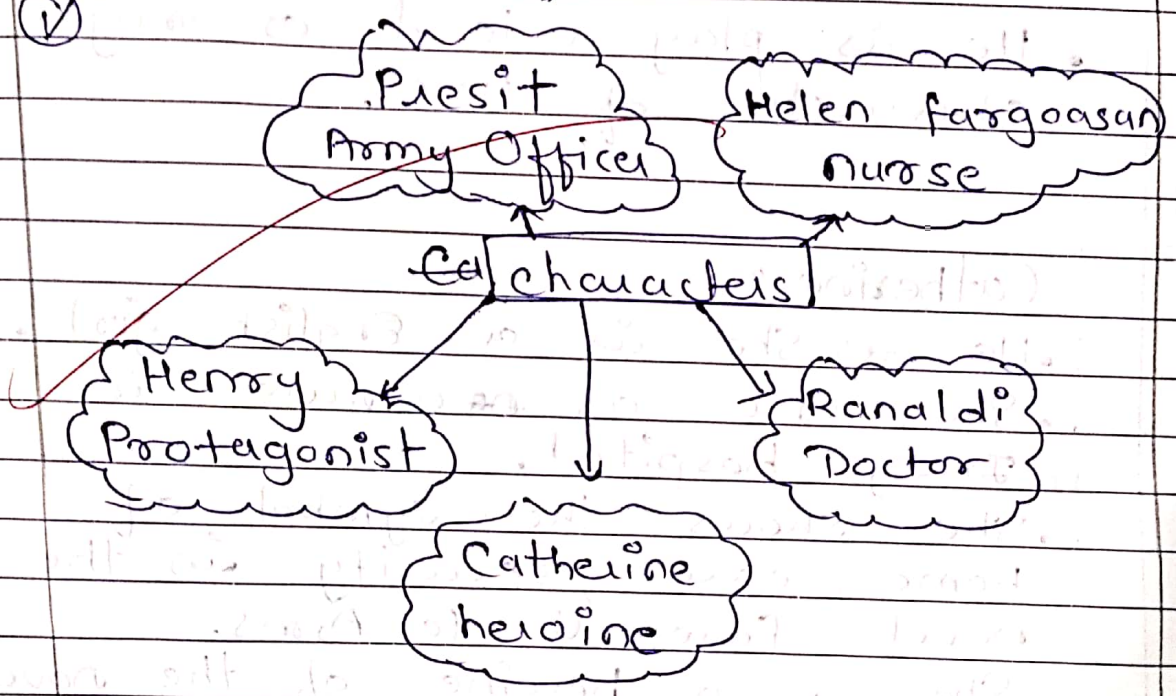 Presit
Army Officer
Helen fargoasan
nurse
characters
Henry
Protagonist
Ranaldi
Doctor
Catherine
heroine